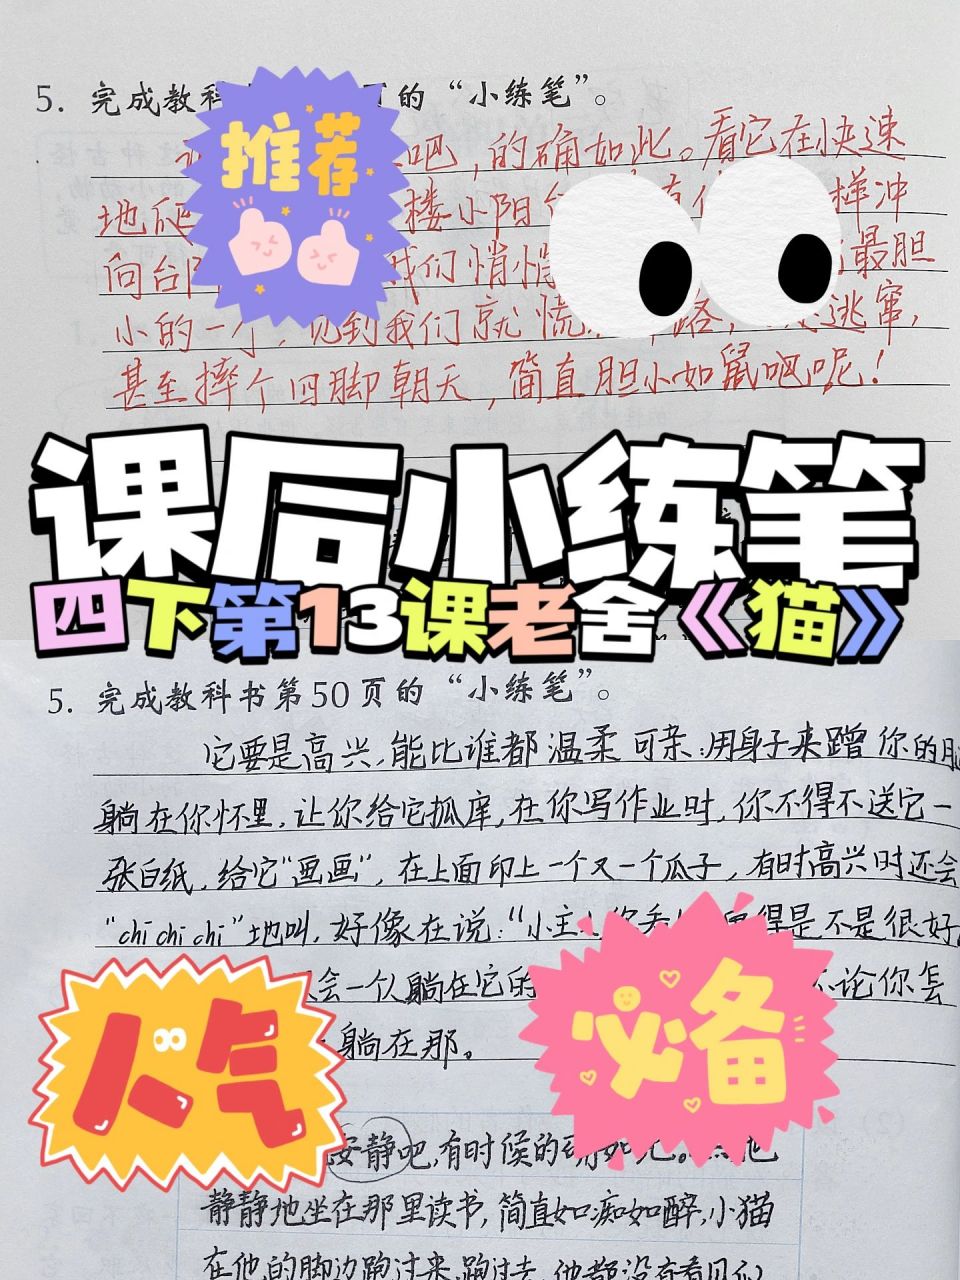 5. 完成教科 页的“小练笔”。
吧，的确如此。看它在快速
地爬 楼小阳台 样冲
向台阶 我们悄悄 最胆
小的一个，见到我们就慌 路， 逃窜，
甚至摔个四脚朝天，简直胆小如鼠吧呢！
推荐
课后小练笔
四下第13课老舍《猫》
5. 完成教科书第50页的“小练笔”。
它要是高兴，能比谁都温柔可亲：用身子来蹭你的
躺在你怀里，让你给它抓痒，在你写作业时，你不得不送它一
张白纸，给它“画画”，在上面印上一个又一个瓜子，有时高兴时还会
“chi chi chi”地叫，好像在说：“小主 得是不是很好
会一个人躺在它的 不论你怎
躺在那。
人气
必备
安静吧，有时候的 他
静静地坐在那里读书，简直如痴如醉，小猫
在他的脚边跑过来，跑过去，他都没有看见们